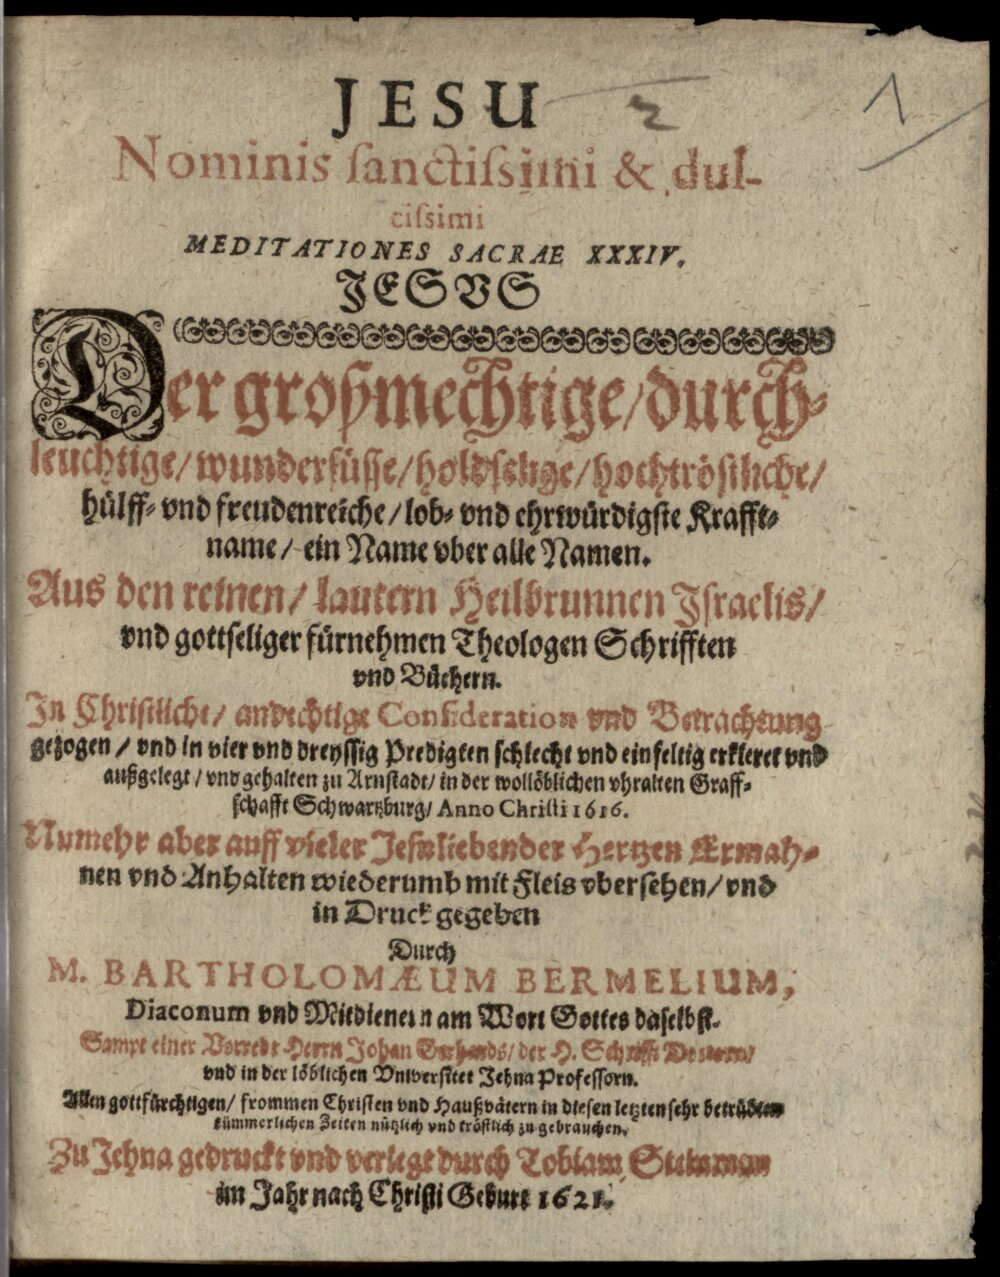 JESU
2
1
Nominis ſanctiſsimi & dul-
ciſsimi
MEDITATIONES SACRAE XXXIV.
JESVS
Der großmechtige/ durch-
leuchtige/ wunderſüſſe/ holdſelige/ hochtröſtliche/
hülff- vnd freudenreiche/ lob- vnd ehrwürdigſte Krafft-
name/ ein Name vber alle Namen.
Aus den reinen/ lautern Heilbrunnen Iſraelis/
vnd gottſeliger fürnehmen Theologen Schrifften
vnd Büchern.
In Chriſtliche/ andechtige Conſideration vnd Betrachtung
gezogen/ vnd in vier vnd dreyſſig Predigten ſchlecht vnd einfeltig erkleret vnd
außgelegt/ vnd gehalten zu Arnſtadt/ in der wollöblichen vhralten Graff-
ſchafft Schwartzburg/ Anno Chriſti 1616.
Numehr aber auff vieler Jeſuliebender Hertzen Ermah-
nen vnd Anhalten wiederumb mit Fleis vberſehen/ vnd
in Druck gegeben
Durch
M. BARTHOLOMÆUM BERMELIUM,
Diaconum vnd Mitdienern am Wort Gottes daſelbſt.
Sampt einer Vorrede Herrn Johan Gerhards/ der H. Schrifft Doctorn/
vnd in der löblichen Vniverſitet Jehna Profeſſorn.
Allen gottfürchtigen/ frommen Chriſten vnd Haußvätern in dieſen letzten ſehr betrübten
kümmerlichen Zeiten nützlich vnd tröſtlich zu gebrauchen.
Zu Jehna gedruckt vnd verlegt durch Tobiam Steinman
im Jahr nach Chriſti Geburt 1621.